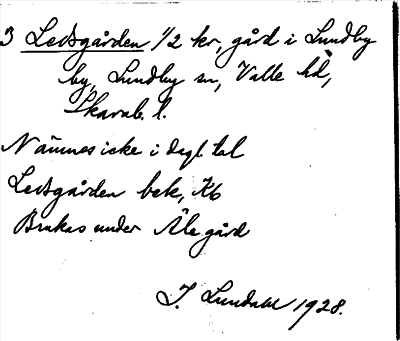 3 Ledsgården 1/2 kr, gård i Lundby
by, Lundby sn, Valle hd,
Skarab. l.
Nämnes icke i dagl. tal
Ledsgården bek, Kb
Brukas under Åle gård
I. Lundahl 1928.